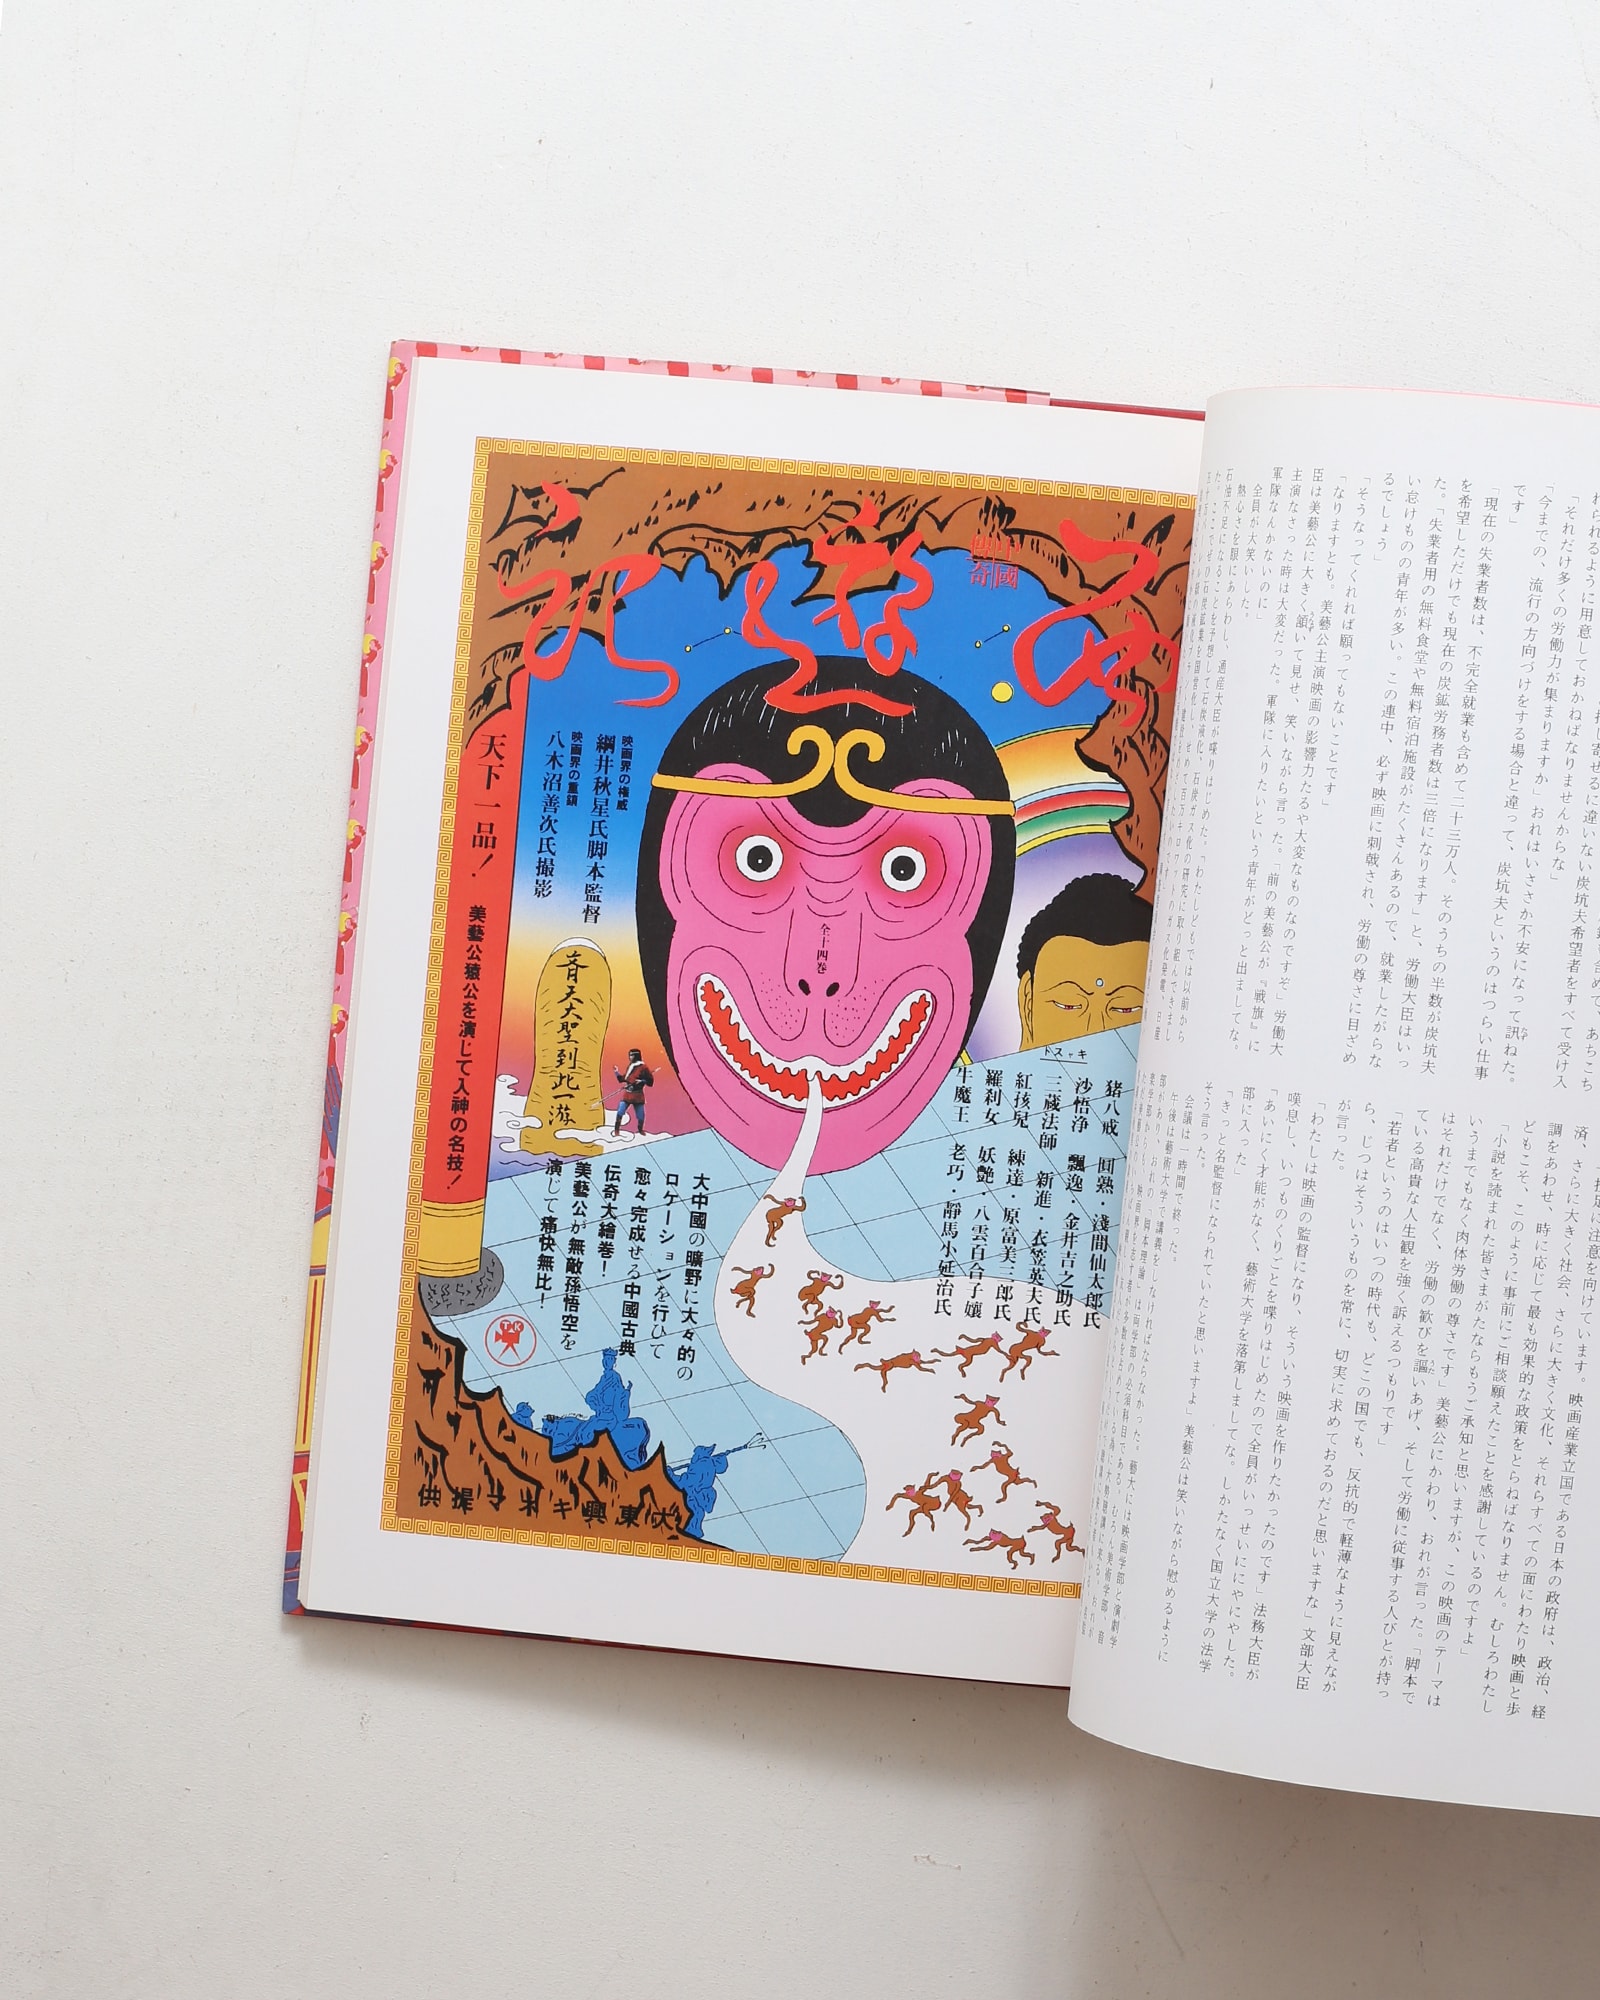 西遊記
中國
映奇
映画界の権威
綱井秋星氏脚本監督
映画界の重鎮
八木沼善次氏撮影
天下一品！
美藝公猿公を演じて入神の名技！
全十四巻
斉天大聖到此一游
キャスト
猪八戒 圓熟・淺間仙太郎氏
沙悟浄 飄逸・金井吉之助氏
三蔵法師 新進・衣笠英夫氏
紅孩兒 練達・原富美三郎氏
羅刹女 妖艶・八雲百合子嬢
牛魔王 老巧・靜馬小延治氏
大中國の曠野に大々的の
ロケーションを行ひて
愈々完成せる中國古典
伝奇大繪巻！
美藝公が無敵孫悟空を
演じて痛快無比！
TK
大東興キネマ提供
「それだけ多くの労働力が集まりますか」おれはいささか不安になって訊ねた。
「今までの、流行の方向づけをする場合と違って、炭坑夫というのはつらい仕事
です」
「現在の失業者数は、不完全就業も含めて二十三万人。そのうちの半数が炭坑夫
を希望しただけでも現在の炭鉱労務者数は三倍になります」と、労働大臣はいっ
た。「失業者用の無料食堂や無料宿泊施設がたくさんあるので、就業したがらな
い怠けものの青年が多い。この連中、必ず映画に刺戟され、労働の尊さに目ざめ
るでしょう」
「そうなってくれれば願ってもないことです」
「なりますとも。美藝公主演映画の影響力たるや大変なものなのですぞ」労働大
臣は美藝公に大きく頷いて見せ、笑いながら言った。「前の美藝公が『戦旗』に
主演なさった時は大変だった。軍隊に入りたいという青年がどっと出ましてな。
軍隊なんかないのに」
全員が大笑いした。
熱心さを眼にあらわし、通産大臣が喋りはじめた。「わたしどもでは以前から
石油不足になることを予想して石炭液化、石炭ガス化の研究に取り組んできまし
済、さらに大きく社会、さらに大きく文化、それらすべての面にわたり映画と歩
調をあわせ、時に応じて最も効果的な政策をとらねばなりません。むしろわたし
どもこそ、このように事前にご相談願えたことを感謝しているのですよ」
「小説を読まれた皆さまがたならもうご承知と思いますが、この映画のテーマは
いうまでもなく肉体労働の尊さです」美藝公にかわり、おれが言った。「脚本で
はそれだけでなく、労働の歓びを謳いあげ、そして労働に従事する人びとが持っ
ている高貴な人生観を強く訴えるつもりです」
「若者というのはいつの時代も、どこの国でも、反抗的で軽薄なように見えなが
ら、じつはそういうものを常に、切実に求めておるのだと思いますな」文部大臣
が言った。
「わたしは映画の監督になり、そういう映画を作りたかったのです」法務大臣が
嘆息し、いつものくりごとを喋りはじめたので全員がいっせいににやにやした。
「あいにく才能がなく、藝術大学を落第しましてな。しかたなく国立大学の法学
部に入った」
「きっと名監督になられていたと思いますよ」美藝公は笑いながら慰めるように
そう言った。
会議は一時間で終った。